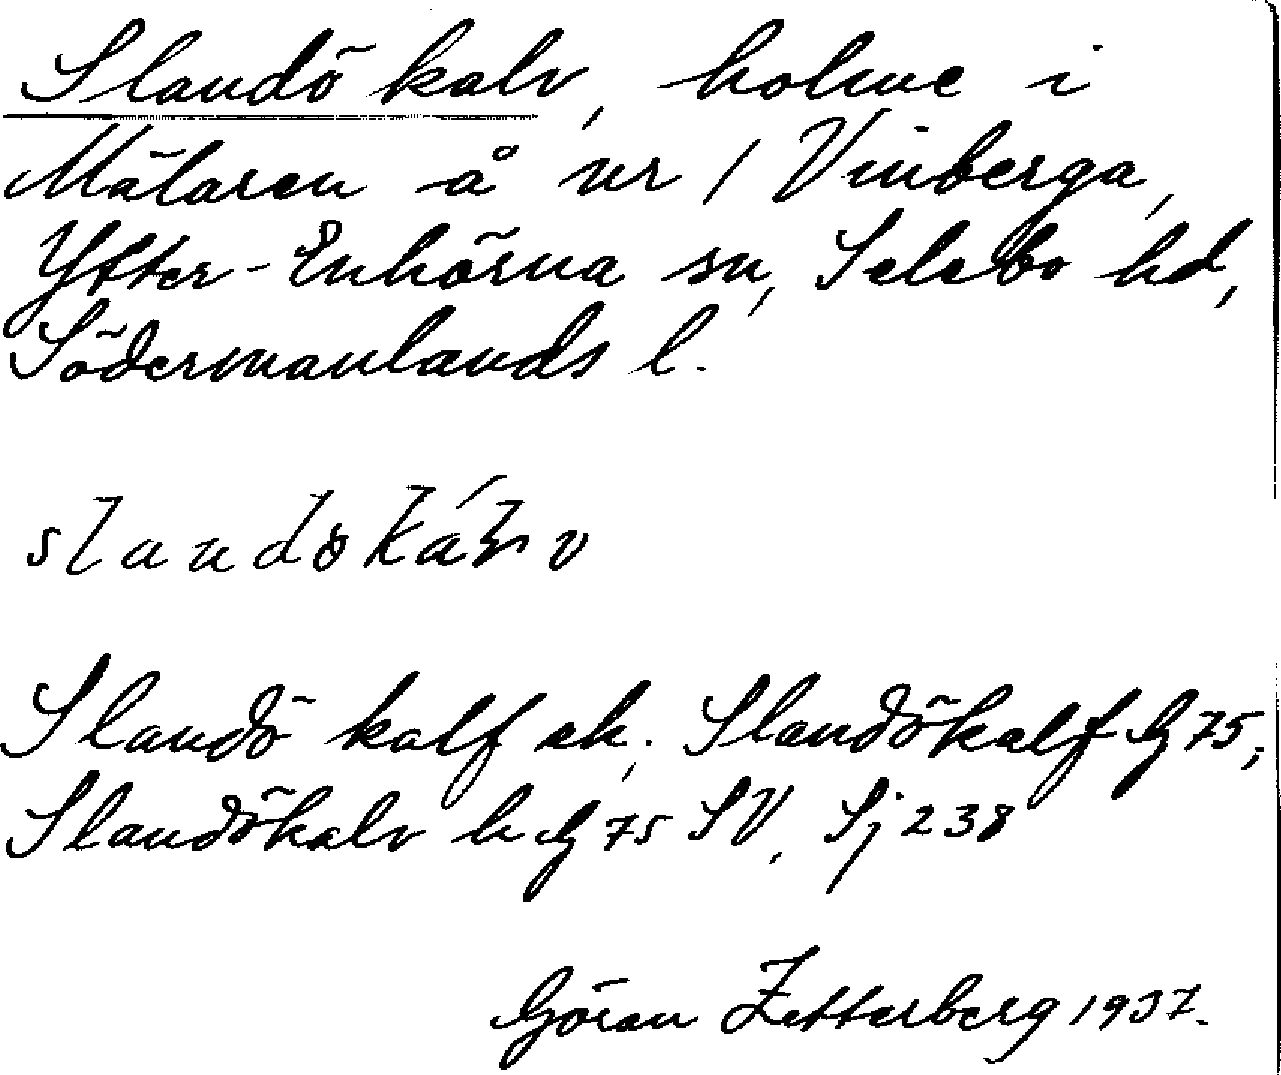 Slandö kalv, holme i
Mälaren å nr 1 Vinberga,
Ytter-Enhörna sn, Selebo hd,
Södermanlands l.
Slandö kalf ek; Slandökalf G 75;
Slandökalv h G 75 SV, Sj 238
Göran Zetterberg 1937.